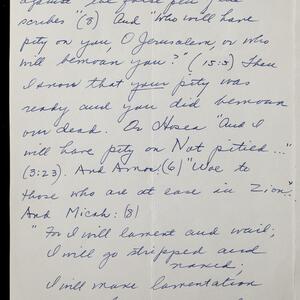 against the false pen of the
scribes" (8) And "Who will have
pity on you, O Jerusalem, or who
will bemoan you?" (15:5) Then
I know that your pity was
ready and you did bemoan
our dead. Or Hosea "And I
will have pity on Not pitied..."
(3:23). And Amos: (6) "Woe to
those who are at ease in Zion".
And Micah: (8)
"For I will lament and wail;
I will go stripped and
naked;
I will make lamentation